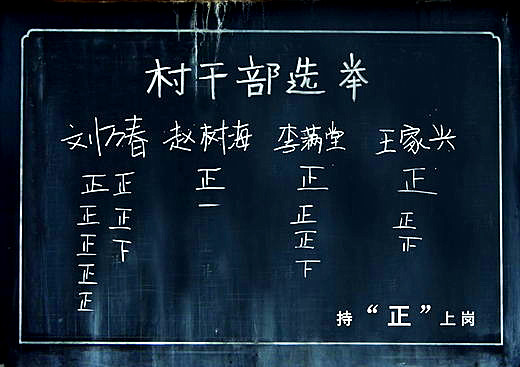 村干部选举
刘万春 赵树海 李满堂 王家兴
正 正 正 正 正
正 正 一 正 正
正 下 正
正 下
正
持“正”上岗